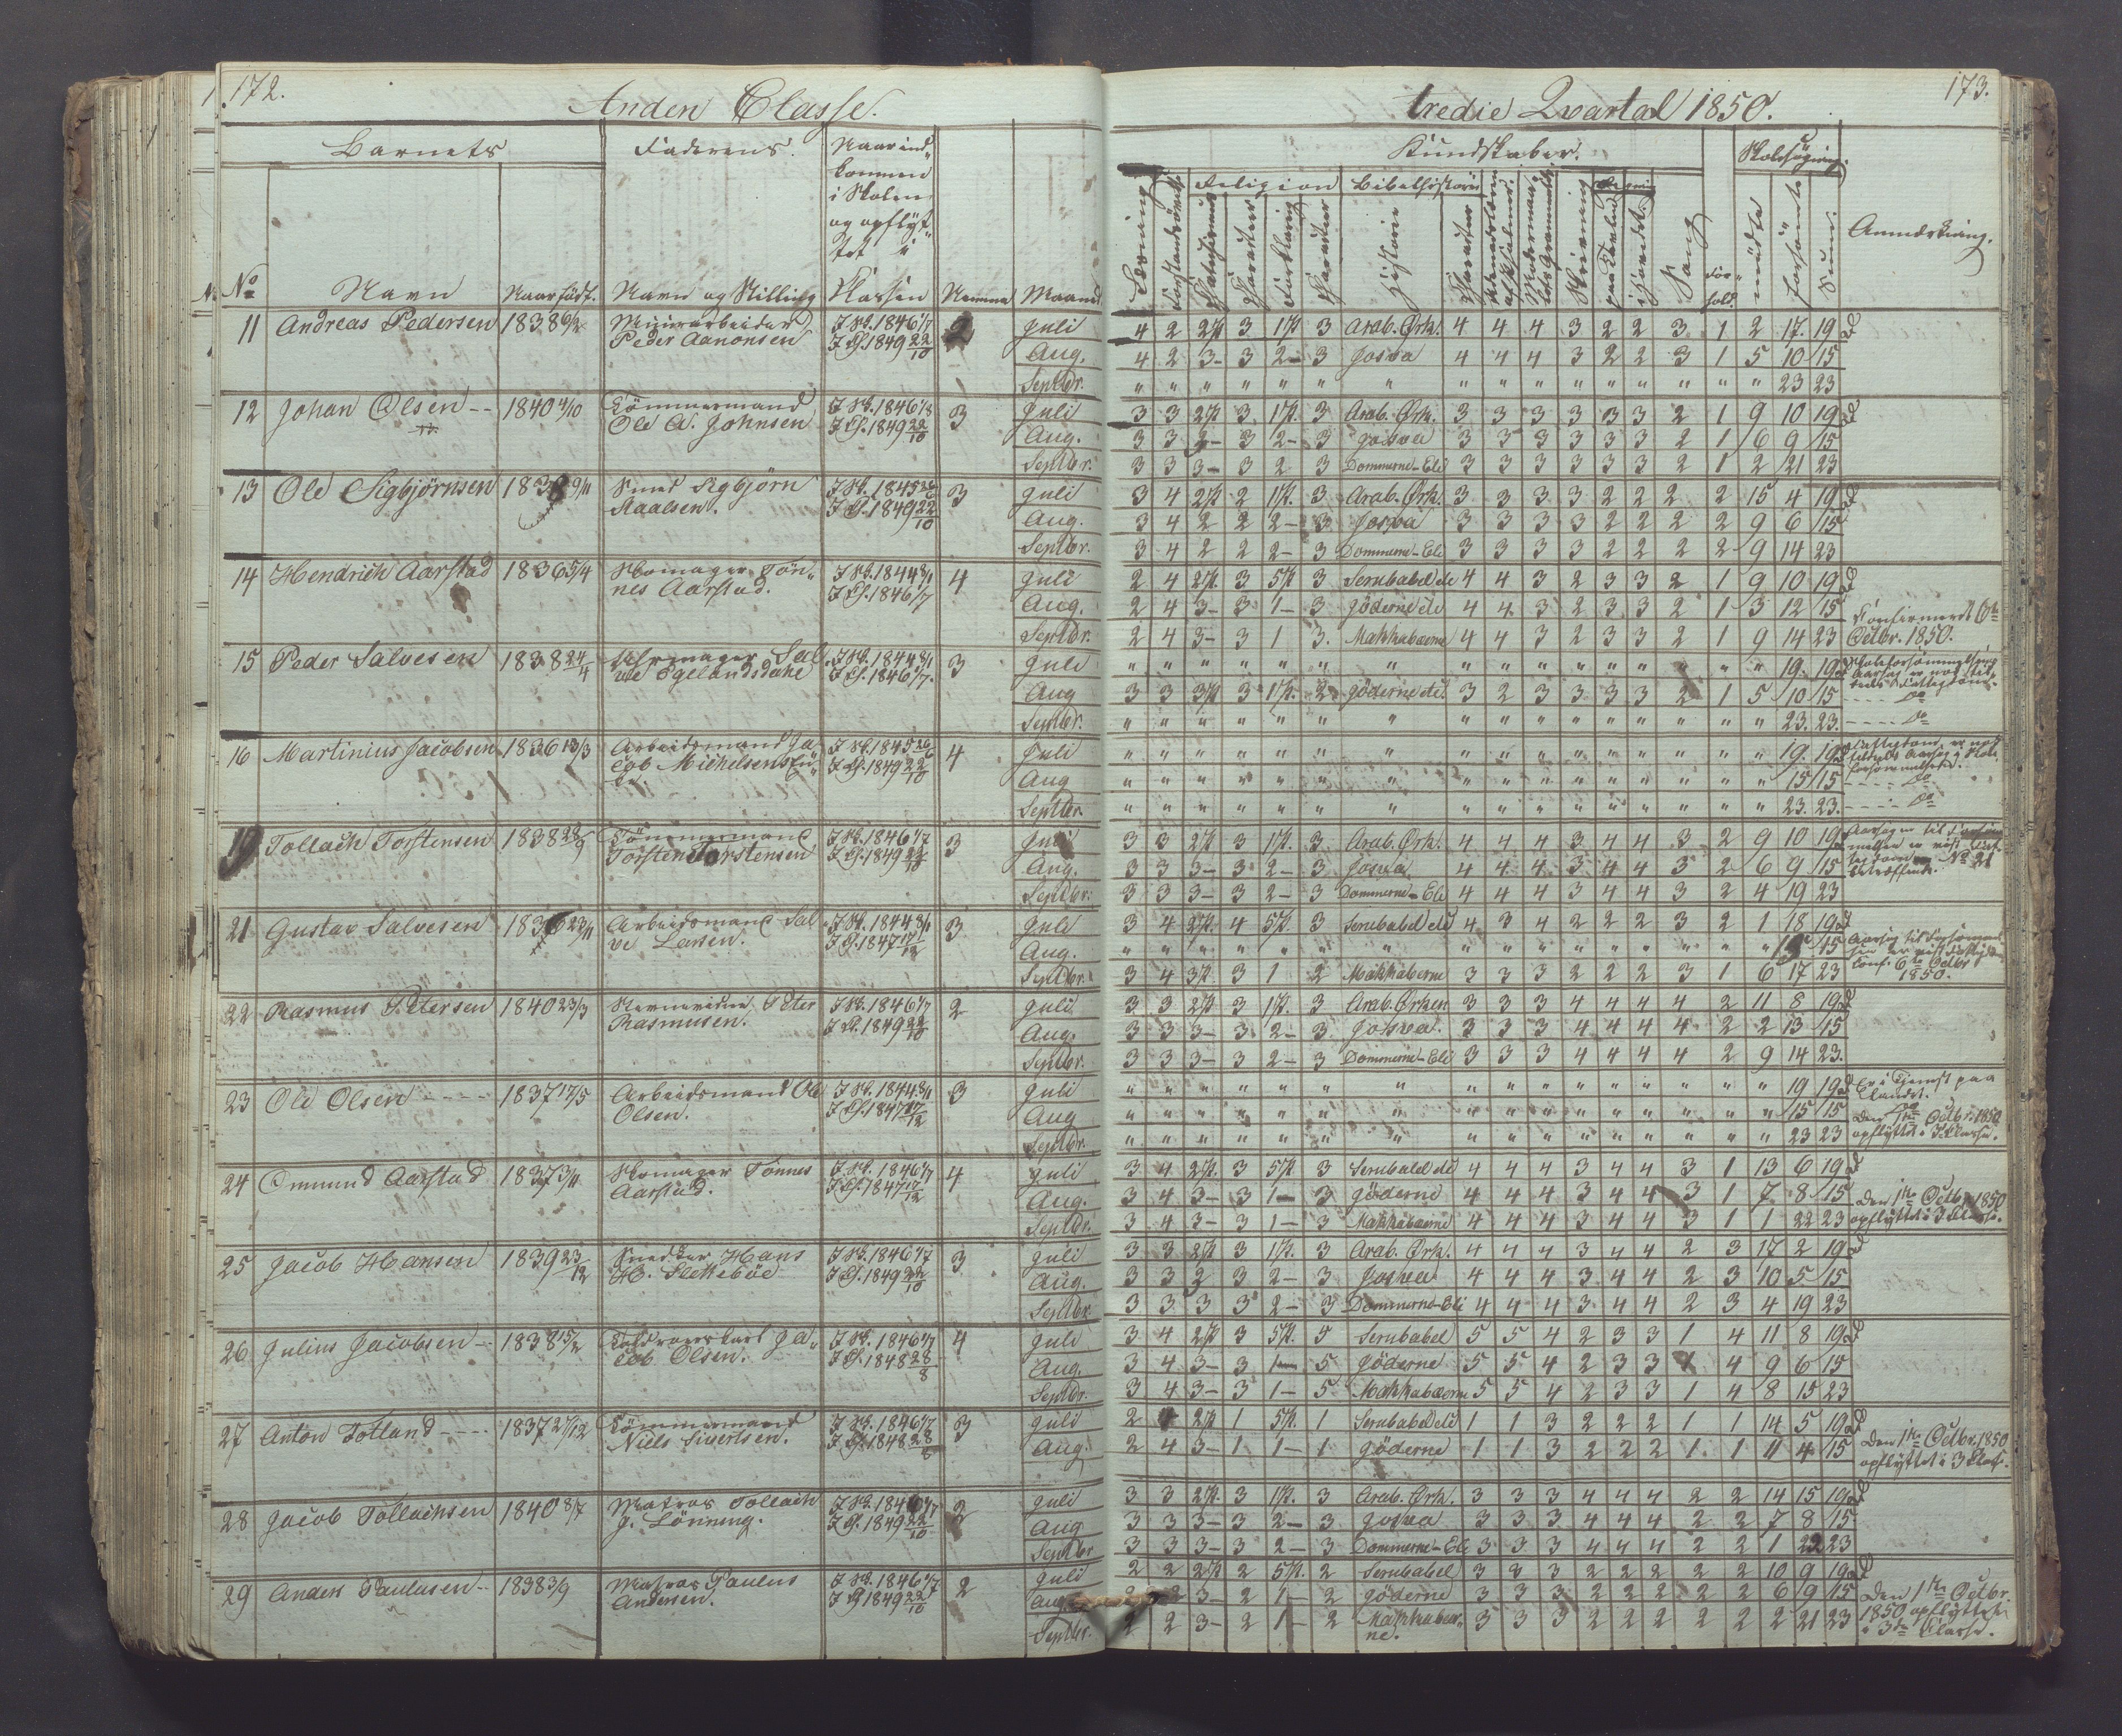 172.
Anden Classe.
Barnets
Faderens.
Naar ind-
kommen
i Skolen
og opflyt-
tet i
Klassen
No
Navn
Naar født.
Navn og Stilling
Nemme
Maaned
11 Andreas Pedersen 1838 Muurarbeider I Sk. 1846 1/7 Juli
Peder Aanonsen I Cl. 1849 22/10 Aug.
Septbr.
12 Johan Olsen -- 1840 4/10 Tömmermand I Sk. 1846 1/8 3 Juli
Ole A. Johnsen I Cl. 1849 22/10 Aug.
Septbr.
13 Ole Sigbjörnsen 1838 9/11 Smed Sigbjörn I Sk. 1845 26/6 3 Juli
Staalsen. I Cl. 1849 22/10 Aug.
Septbr.
14 Hendrich Aarstad 1836 5/4 Skomager Tön- I Sk. 1844 8/1 4 Juli
nes Aarstad. I Cl. 1846 1/7 Aug.
Septbr.
15 Peder Salvesen 1838 24/4 Sal- I Sk. 1844 8/1 3 Juli
ve Egelandsdahl I Cl. 1846 1/7. Aug
Septbr.
16 Martinius Jacobsen 1836 13/3 Arbeidsmand Ja- I Sk. 1845 26/6 4 Juli
cob Michelsen I Cl. 1849 22/10 Aug
Septbr.
19 Tollach Torstensen 1838 28/9 Tömmermand I Sk. 1846 1/7 3 Juli
Torsten Torstensen I Cl. 1849 22/10 Aug.
Septbr.
21 Gustav Salvesen 1836 23/11 Arbeidsmand Sal- I Sk. 1844 8/1 3 Juli
ve Larsen. I Cl. 1847 17/12 Aug.
Septbr.
22 Rasmus Petersen 1840 23/3 Peter I Sk. 1846 1/7 2 Juli
Rasmusen. I Cl. 1849 22/10 Aug.
Septbr.
23 Ole Olsen ---- 1837 17/5 Arbeidsmand Ole I Sk. 1844 8/1 3 Juli
Olsen. I Cl. 1847 17/12 Aug
Septbr.
24 Ommund Aarstad 1837 3/11 Skomager Tönnes I Sk. 1846 1/7 4 Juli
Aarstad. I Cl. 1847 17/12 Aug.
Septbr.
25 Jacob Hansen 1839 23/12 Snedker Hans I Sk. 1846 1/7 3 Juli
H. Slettebøe I Cl. 1849 22/10 Aug.
Septbr.
26 Julius Jacobsen - 1838 15/2 Ja- I Sk. 1846 1/7 4 Juli
cob Olsen. I Cl. 1848 28/8 Aug.
Septbr.
27 Anton Totland ---- 1837 27/12 Tömmermand I Sk. 1846 1/7 3 Juli
Niels Sivertsen. I Cl. 1848 28/8 Aug.
28 Jacob Tollachsen 1840 8/7 Matros Tollach I Sk. 1846 1/7 2 Juli
J. Lönning. I Cl. 1849 22/10 Aug
Septbr
29 Anders Paulusen -- 1838 3/9 Matros Paulus I Sk. 1846 1/7 2 Juli
Andersen. I Cl. 1849 22/10 Aug.
Septbr.
173.
tredie Qvartal 1850.
Kundskaber.
Skolesøgning.
Religion
Bibelhistorie
Regning
Læsning
Forstandsövelse
Katechismus
Karakter
Forklaring
Karakter
Historie
Karakter
Udenadslæren
af Psalmer.
Modersmaa-
lets Grammatik
Skrivning
paa Tavlen
i Hovedet.
Sang
For-
hold.
mødte
forsömte
Sum.
Anmærkning.
4 2 2 P. 3 1 P. 3 Arab. Ørk. 4 4 4 3 2 2 3 1 2 17. 19
4 2 3- 3 2- 3 Josva 4 4 4 3 2 2 3 1 5 10 15
" " " " " " " " " " " " " " " " 23 23
3 3 2 P. 3 1 P. 3 Arab. Ørk. 3 3 3 3 3 3 2 1 9 10 19
3 3 3- 3 2- 3 Josva 3 3 3 3 3 3 2 1 6 9 15
3 3 3- 3 2 3 Dommerne-Eli 3 3 3 3 3 3 2 1 2 21 23
3 4 2 P. 2 1 P. 3 Arab. Ørk. 3 3 3 3 2 2 2 2 15 4 19
3 4 2 2 2- 3 Josva 3 3 3 3 2 2 2 2 9 6 15
3 4 2 2 2- 3 Dommerne-Eli 3 3 3 3 2 2 2 2 9 14 23
2 4 2 P. 3 5 P. 3 Serubabel etc 4 4 3 2 3 3 2 1 9 10 19
2 4 3- 3 1- 3 Jöderne etc 4 4 3 2 3 3 2 1 3 12 15 Confirmeret 6te
2 4 3- 3 1 3. Makkabæerne 4 4 3 2 3 3 2 1 9 14 23 Octbr. 1850.
" " " " " " " " " " " " " " " " 19. 19
3 3 3 P. 3 1 P. 2 Jöderne etc. 3 2 3 3 3 3 2 1 5 10 15 ---- Do
" " " " " " " " " " " " " " " " 23. 23. ---- Do
" " " " " " " " " " " " " " " " 19. 19
" " " " " " " " " " " " " " " " 15 15 ---- Do
" " " " " " " " " " " " " " " " 23. 23. ---- Do
3 3 2 P. 3 1 P. 3 Arab. Ørk. 4 4 4 3 4 4 3 2 9 10 19
3 3 3- 3 2- 3 Josva 4 4 4 3 4 4 3 2 6 9 15
3 3 3- 3 2- 3 Dommerne-Eli 4 4 4 3 4 4 3 2 4 19 23
3 4 2 P. 4 5 P. 3 Serubabel etc 4 3 4 2 2 2 3 2 1 18 19
" " " " " " " " " " " " " " " " 15 15
3 4 3 P. 3 1 2 Makkabæerne 3 3 3 2 2 2 3 1 6 17 23 Conf. 6te Octbr
1850.
3 3 2 P. 3 1 P. 3 Arab. Ørken 3 3 3 4 4 4 4 2 11 8 19
3 3 3- 3 2- 3 Josva. 3 3 3 4 4 4 4 2 2 13 15
3 3 3- 3 2- 3 Dommerne-Eli 3 3 3 4 4 4 4 2 9 14 23.
" " " " " " " " " " " " " " " " 19 19 Er i Tjeneste paa
Landet.
" " " " " " " " " " " " " " " " 15 15 Den 1ste Octbr. 1850
" " " " " " " " " " " " " " " " 23 23 opflyttet i 3 Classe.
3 4 2 P. 3 5 P. 3 Serubabel etc 4 4 4 3 4 4 3 1 13 6 19
3 4 3- 3 1- 3 Jöderne 4 4 4 3 4 4 3 1 7 8 15 Den 1ste Octbr. 1850
3 4 3- 3 1- 3 Makkabæerne 4 4 4 3 4 4 3 1 1 22 23 opflyttet i 3 Classe.
3 3 2 P. 3 1 P. 3 Arab. Ørk. 4 4 4 3 4 4 2 3 17 2 19
3 3 2 3 2- 3 Josva 4 4 4 3 4 4 2 3 10 5 15
3 3 3 3 2- 3 Dommerne-Eli 4 4 4 3 4 4 2 3 4 19 23
3 4 2 P. 3 5 P. 5 Serubabel 5 5 4 2 3 3 1 4 11 8 19
3 4 3- 3 1- 5 Jöderne 5 5 4 2 3 3 1 4 9 6 15
3 4 3- 3 1- 5 Makkabæerne 5 5 4 2 3 3 1 4 8 15 23
2 4 2 P. 1 5 P. 1 Serubabel etc 1 1 3 2 2 2 1 1 14 5 19 Den 1ste Octbr. 1850
2 4 3- 1 1- 1 Jöderne 1 1 3 2 2 2 1. 1 11 4 15 opflyttet i 3 Clas.
3 3 2 P. 3 1 P. 3 Arab. Ørk. 3 3 3 4 4 4 2 2 14 15 19
3 3 3- 3 2- 3 Josva 3 3 3 4 4 4 2 2 7 8 15
3 3 3- 3 2- 3 Dommerne-Eli 3 3 3 4 4 4 2 2 1 22 23
2 2 2 P. 2 5 P. 2 Serubabel 3 3 3 2 2 2 2 2 10 9 19
2 2 3- 2 1- 2 Jöderne 3 3 3 2 2 2 2 2 6 9 15 Den 1ste Octbr.
2 2 3- 2 1- 2 Makkabæer- 3 3 3 2 2 2 2 2 2 21 23 1850 opflyttet
ne. i 3die Classe.